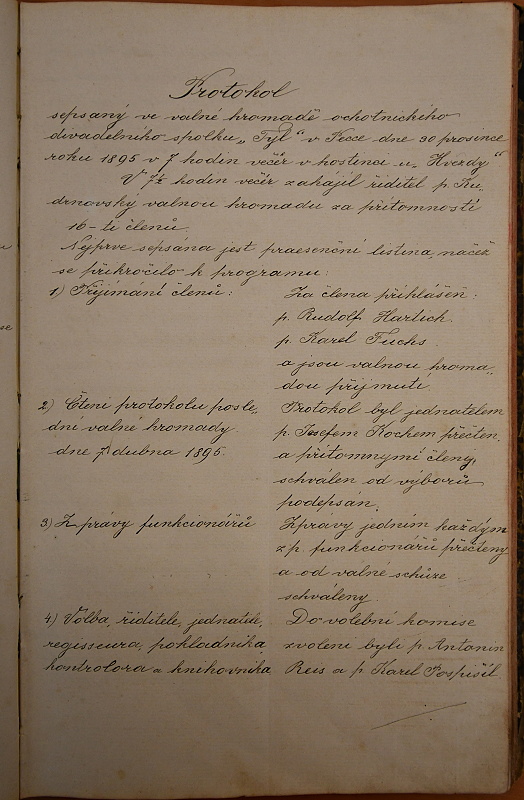 Protokol
sepsaný ve valné hromadě ochotnického
divadelního spolku „Tyl“ v Pecce dne 30 prosince
roku 1895 v 7 hodin večer v hostinci u „Hvězdy“
V 7½ hodin večer zahájil řiditel p. Ku-
drnovský valnou hromadu za přítomnosti
16-ti členů.
Nejprve sepsána jest praesenční listina, načež
se přikročilo k programu:
1) Přijímání členů:
Za člena přihlášen:
p. Rudolf Harlich.
p. Karel Fuchs
a jsou valnou hroma„
dou přijmuti.
2) Čtení protokolu posle„
dní valné hromady
dne 7. dubna 1895.
Protokol byl jednatelem
p. Josefem Kochem přečten,
a přítomnými členy,
schválen od výborů
podepsán.
3) Zprávy funkcionářů
Zprávy jedním každým
z p. funkcionářů přečteny
a od valné schůze
schváleny.
4) Volba, řiditele, jednatele,
regisseura, pokladníka,
kontrolora a knihovníka.
Do volební komise
zvoleni byli p. Antonín
Reis a p. Karel Pospíšil.